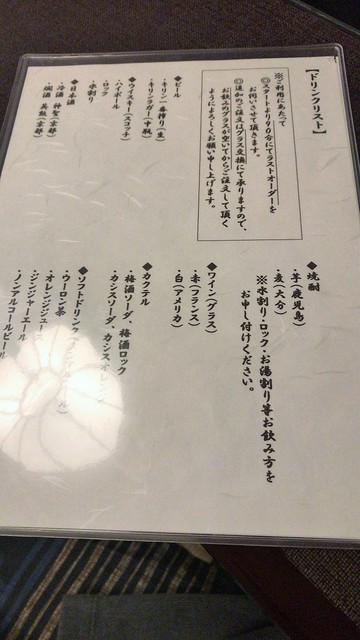 【ドリンクリスト】
※ご利用にあたって
◎スタートより90分にてラストオーダーを
お伺いさせて頂きます。
◎追加のご注文はグラス交換にて承りますので、
お飲みのグラスが空いてからご注文して頂く
ようによろしくお願い申し上げます。
◆ビール
・キリン一番搾り(生)
・キリンラガー(中瓶)
◆ウイスキー(スコッチ)
・ハイボール
・ロック
・水割り
◆日本酒
・冷酒 神聖(京都)
・燗酒 英勲(京都)
◆焼酎
・芋(鹿児島)
・麦(大分)
※水割り・ロック・お湯割り等お飲み方を
お申し付けください。
◆ワイン(グラス)
・赤(フランス)
・白(アメリカ)
◆カクテル
・梅酒ソーダ、梅酒ロック
・カシスソーダ、カシスオレンジ
◆ソフトドリンク
・ウーロン茶
・オレンジジュース
・ジンジャーエール
・ノンアルコールビール